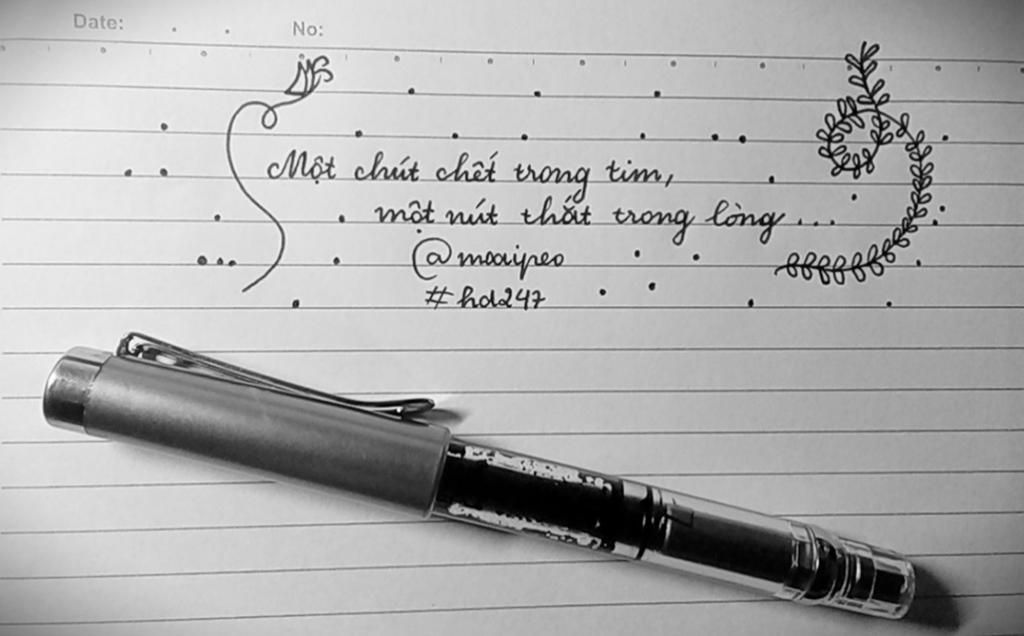 Date: No:
Một chút chết trong tim,
một nút thắt trong lòng...
@moaipeo
#hd247